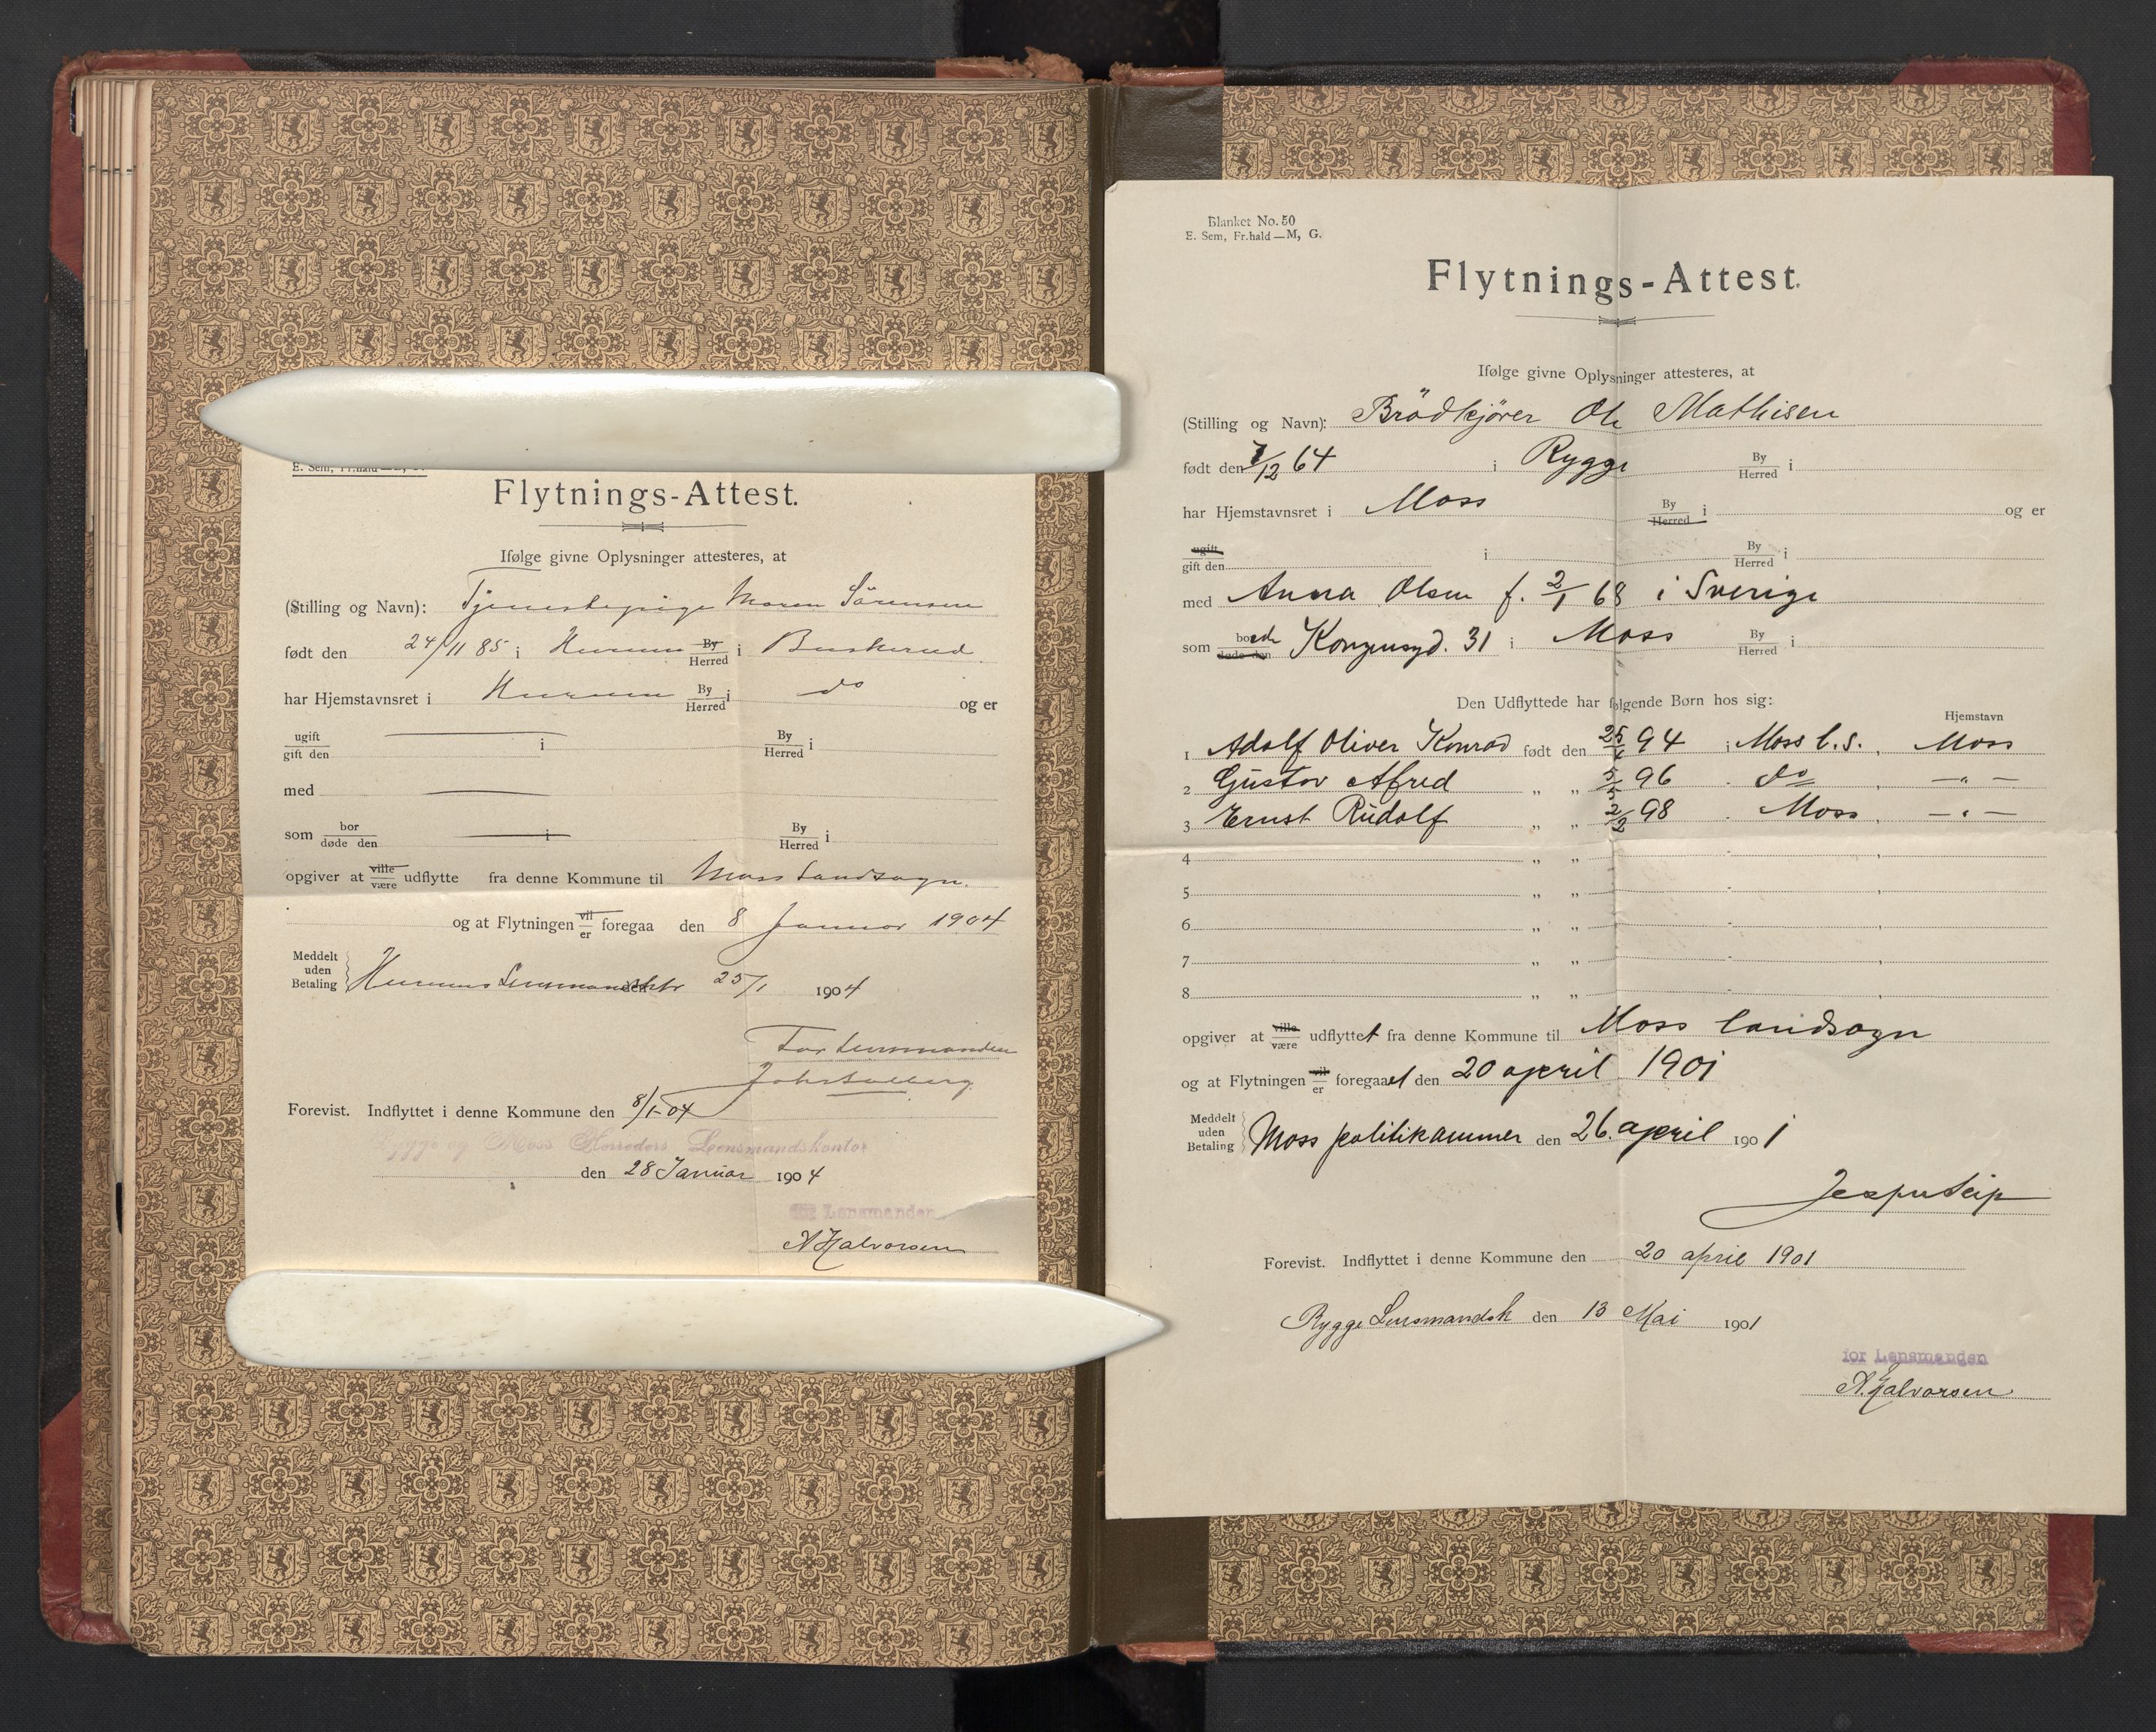 E. Sem, Fr.hald
Flytnings-Attest.
Ifølge givne Oplysninger attesteres, at
(Stilling og Navn): Tjenestepige Maren Sörensen
født den 24/11 85 i Hurum By Herred i Buskerud
har Hjemstavnsret i Hurum By Herred i do og er
ugift gift den i By Herred i
med
som bor døde den i By Herred i
opgiver at ville være udflytte fra denne Kommune til Moss Landsogn.
og at Flytningen vil er foregaa den 8 Januar 1904
Meddelt uden Betaling Hurums Lensmandsktr den 25/1 1904
For Lensmanden
Forevist. Indflyttet i denne Kommune den 8/1-04
Rygge og Moss Herreders Lensmandskontor
den 28 Januar 1904
for Lensmanden
A Halvorsen
Blanket No. 50
E. Sem, Fr.hald — M, G.
Flytnings-Attest.
Ifølge givne Oplysninger attesteres, at
(Stilling og Navn): Brödkjörer Ole Mathisen
født den 7/12 64 i Rygge By Herred i
har Hjemstavnsret i Moss By Herred i og er
ugift gift den i By Herred i
med Anna Olsen f. 2/1 68 i Sverige
som boede døde den Kongensgd. 31 i Moss By Herred i
Den Udflyttede har følgende Børn hos sig:
Hjemstavn
1 Adolf Oliver Konrad født den 25/4 94 i Moss l.s., Moss
2 Gustav Alfred " " 5/5 96 do — " —
3 Ernst Rudolf " " 2/2 98 Moss, — " —
4 " "
5 " "
6 " "
7 " "
8 " "
opgiver at ville være udflyttet fra denne Kommune til Moss landsogn
og at Flytningen vil er foregaaet den 20 april 1901
Meddelt uden Betaling Moss politikammer den 26. april 1901
Jesper Seip
Forevist. Indflyttet i denne Kommune den 20 april 1901
Rygge Lensmandsk den 13 Mai 1901
for Lensmanden
A. Halvorsen